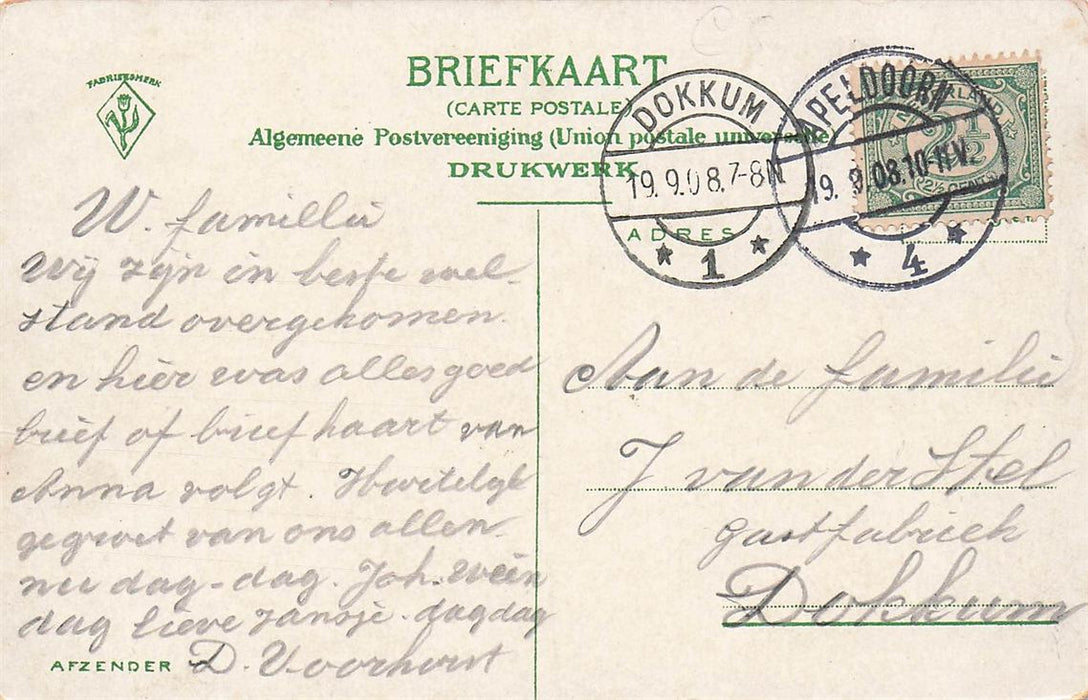 FABRIEKSMERK
BRIEFKAART
(CARTE POSTALE)
Algemeene Postvereeniging (Union postale universelle)
DRUKWERK
DOKKUM
19. 9. 08. 7-8N
1
APELDOORN
19. 9. 08. 10-11V.
4
2½
(2½ CENT)
ADRES
W. familie
Wij zijn in beste wel-
stand overgekomen.
en hier was alles goed
brief of briefkaart van
Anna volgt. Hartelijk
gegroet van ons allen.
nu dag-dag. Joh.
dag lieve Jansje. dagdag
AFZENDER D. Voorhorst
Aan de familie
J van der Stel
gastfabriek
Dokkum